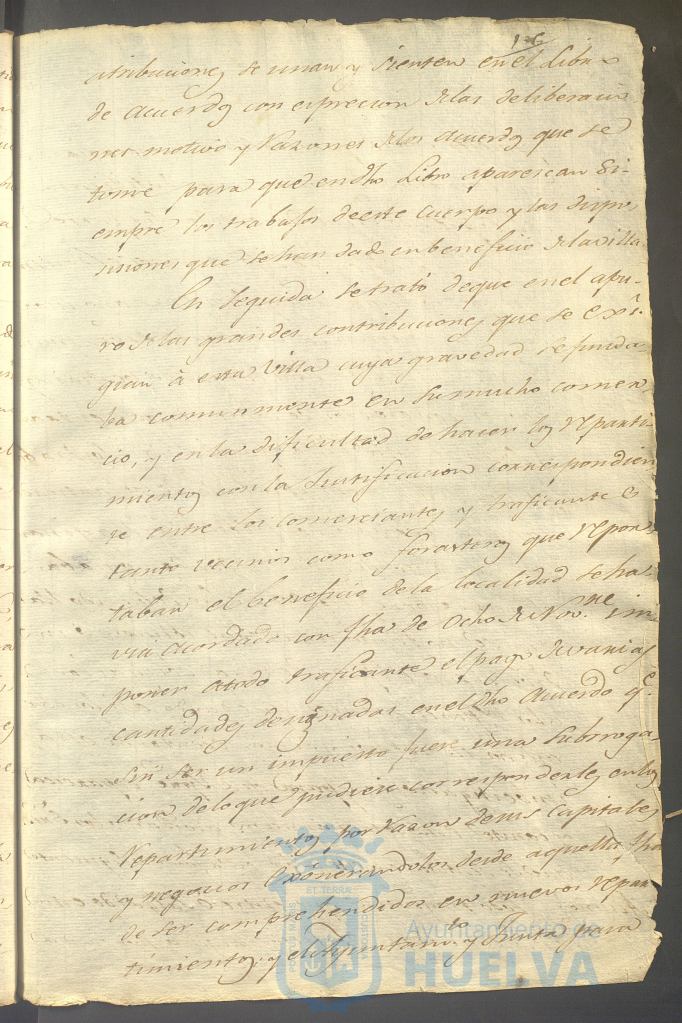 atribuciones se unan y sienten en el Libro
de Acuerdos con espresion de las deliberacio
nes motivo y razones de los acuerdos que se
tome para que en dho Libro aparescan Si-
empre los trabajos de este Cuerpo y las dispo
siciones que se han dado en beneficio de la villa
En seguida se trató de que en el apu-
ro de las grandes contribuciones que se exi-
gian à esta Villa cuya gravedad se funda
ba comunmente en su mucho comer
cio, y en la dificultad de hacer los reparti
mientos con la Justificacion correspondien
te entre los comerciantes y traficantes
tanto vecinos como forasteros que repor
taban el beneficio de la localidad se ha
via acordado con fha de Ocho de Nov.re im
poner a todo traficante el pago de varias
cantidades designadas en el dho Acuerdo q.e
sin ser un impuesto fuere una subrroga
cion de lo que pudiere corresponderles en los
repartimientos por razon de sus Capitales
y negocios Exônerandolos desde aquella fha
de ser comprehendidos en nuevos repar
timientos y el Ayuntam.to y Junta para
ET TERRÆ
Ayuntamiento de
HUELVA